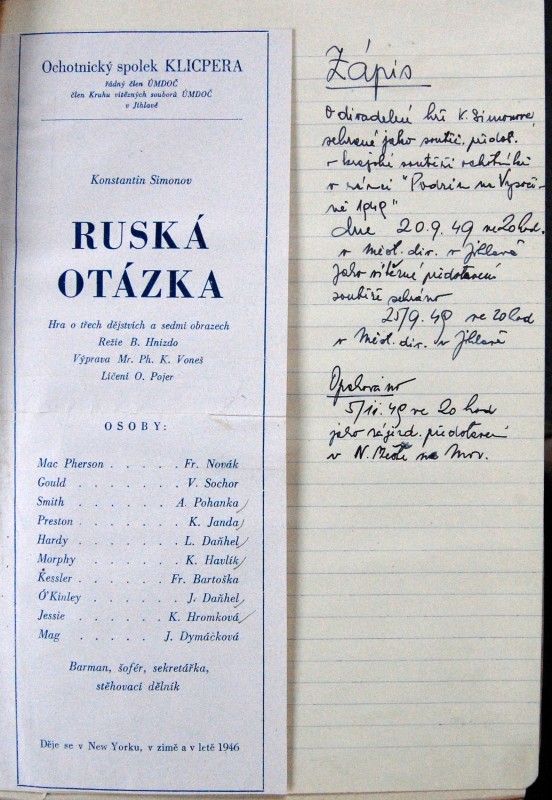 Ochotnický spolek KLICPERA
řádný člen ÚMDOČ
člen Kruhu vítězných souborů ÚMDOČ
v Jihlavě
Konstantin Simonov
RUSKÁ
OTÁZKA
Hra o třech dějstvích a sedmi obrazech
Režie B. Hnízdo
Výprava Mr. Ph. K. Voneš
Líčení O. Pojer
OSOBY:
Mac Pherson . . . . . Fr. Novák
Gould . . . . . . V. Sochor
Smith . . . . . . A. Pohanka
Preston . . . . . . K. Janda
Hardy . . . . . . L. Daňhel
Morphy . . . . . . K. Havlík
Kessler . . . . . . Fr. Bartoška
O'Kinley . . . . . J. Daňhel
Jessie . . . . . K. Hromková
Mag . . . . . J. Dymáčková
Barman, šofér, sekretářka,
stěhovací dělník
Děje se v New Yorku, v zimě a v letě 1946
Zápis
o divadelní hře K. Simonova
sehrané jako soutěž. předst.
v krajské soutěži
v rámci "Podzim na Vysoči-
ně 1949"
dne 20.9.49 ve 20 hod.
v měst. div. v Jihlavě
jako vítězné představení
soutěže sehráno
25/9.49 ve 20 hod
v Měst. div. v Jihlavě
Opakováno
5/11.49 ve 20 hod
jako zájezd. představení
v N. Městě na Mor.